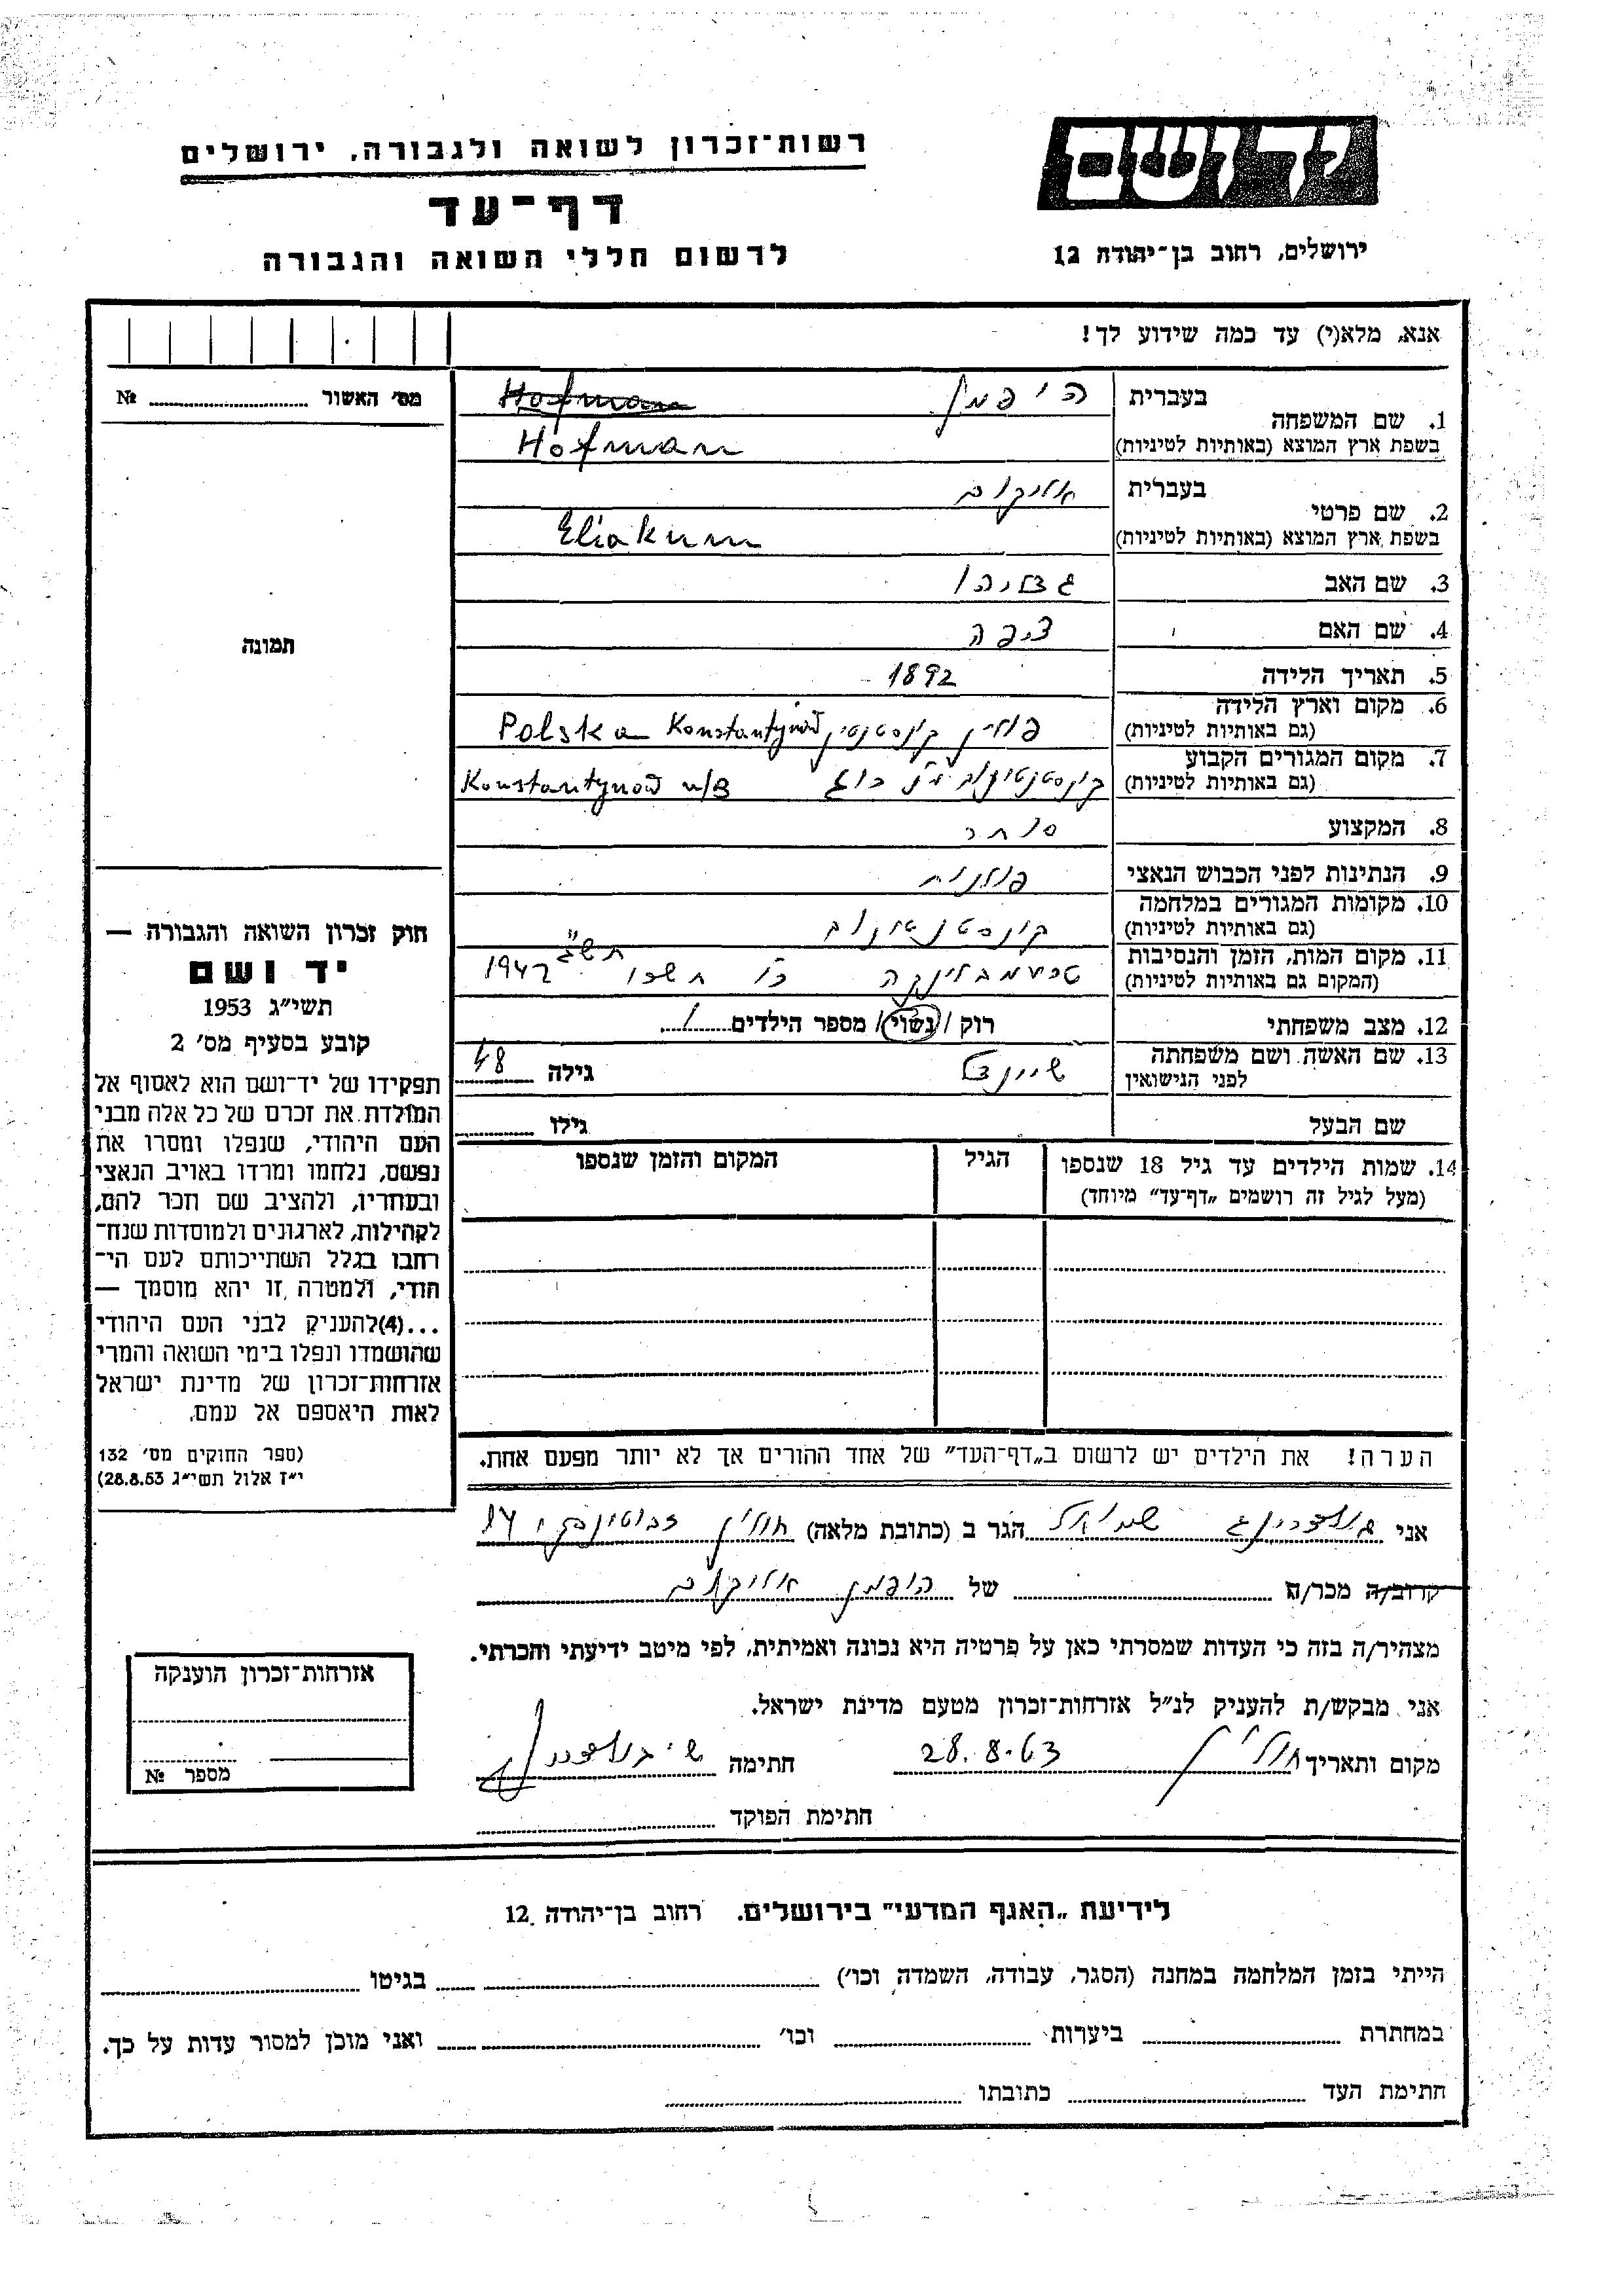 יד ושם
ירושלים, רחוב בן־יהודה 12
רשות־זכרון לשואה ולגבורה, ירושלים
דף־עד
לרשום חללי השואה והגבורה
אנא, מלא(י) עד כמה שידוע לך!
מס׳ האשור № 
1. שם המשפחה
בעברית הופמן Hofman
בשפת ארץ המוצא (באותיות לטיניות) Hofman
2. שם פרטי
בעברית אליקום
בשפת ארץ המוצא (באותיות לטיניות) Eliakum
3. שם האב גדליהו
4. שם האם ציפה
5. תאריך הלידה 1892
6. מקום וארץ הלידה
(גם באותיות לטיניות) פולין קונסטנטין Konstantynów Polska
7. מקום המגורים הקבוע
(גם באותיות לטיניות) קונסטנטינוב בוג Konstantynów n/B
8. המקצוע סוחר
9. הנתינות לפני הכבוש הנאצי פולנית
10. מקומות המגורים במלחמה
(גם באותיות לטיניות) קונסטנטינוב
11. מקום המות, הזמן והנסיבות
(המקום גם באותיות לטיניות) טרעמבלינקה תשרי תש״ג 1942
12. מצב משפחתי רוק / נשוי / מספר הילדים 1
13. שם האשה ושם משפחתה
לפני הנישואין שיינדל גילה 48
שם הבעל גילו
14. שמות הילדים עד גיל 18 שנספו
(מעל לגיל זה רושמים „דף־עד״ מיוחד)
הגיל
המקום והזמן שנספו
הערה! את הילדים יש לרשום ב„דף־העד״ של אחד ההורים אך לא יותר מפעם אחת.
תמונה
חוק זכרון השואה והגבורה —
יד ושם
תשי״ג 1953
קובע בסעיף מס׳ 2
תפקידו של יד־ושם הוא לאסוף אל
המולדת את זכרם של כל אלה מבני
העם היהודי, שנפלו ומסרו את
נפשם, נלחמו ומרדו באויב הנאצי
ובעוזריו, ולהציב שם וזכר להם,
לקהילות, לארגונים ולמוסדות שנח־
רבו בגלל השתייכותם לעם הי־
הודי, ולמטרה זו יהא מוסמך —
...(4)להעניק לבני העם היהודי
שהושמדו ונפלו בימי השואה והמרי
אזרחות־זכרון של מדינת ישראל
לאות היאספם אל עמם.
(ספר החוקים מס׳ 132
י״ז אלול תשי״ג 28.8.53)
אני שמואל הגר ב (כתובת מלאה) חולון ז׳בוטינסקי
קרוב/ה מכר/ה של הופמן אליקום
מצהיר/ה בזה כי העדות שמסרתי כאן על פרטיה היא נכונה ואמיתית, לפי מיטב ידיעתי והכרתי.
אני מבקש/ת להעניק לנ״ל אזרחות־זכרון מטעם מדינת ישראל.
מקום ותאריך חולון 28.8.63 חתימה
חתימת הפוקד
אזרחות־זכרון הוענקה
מספר №
לידיעת „האגף המדעי״ בירושלים. רחוב בן־יהודה 12
הייתי בזמן המלחמה במחנה (הסגר, עבודה, השמדה, וכו׳) בגיטו
במחתרת ביערות וכו׳ ואני מוכן למסור עדות על כך.
חתימת העד כתובתו